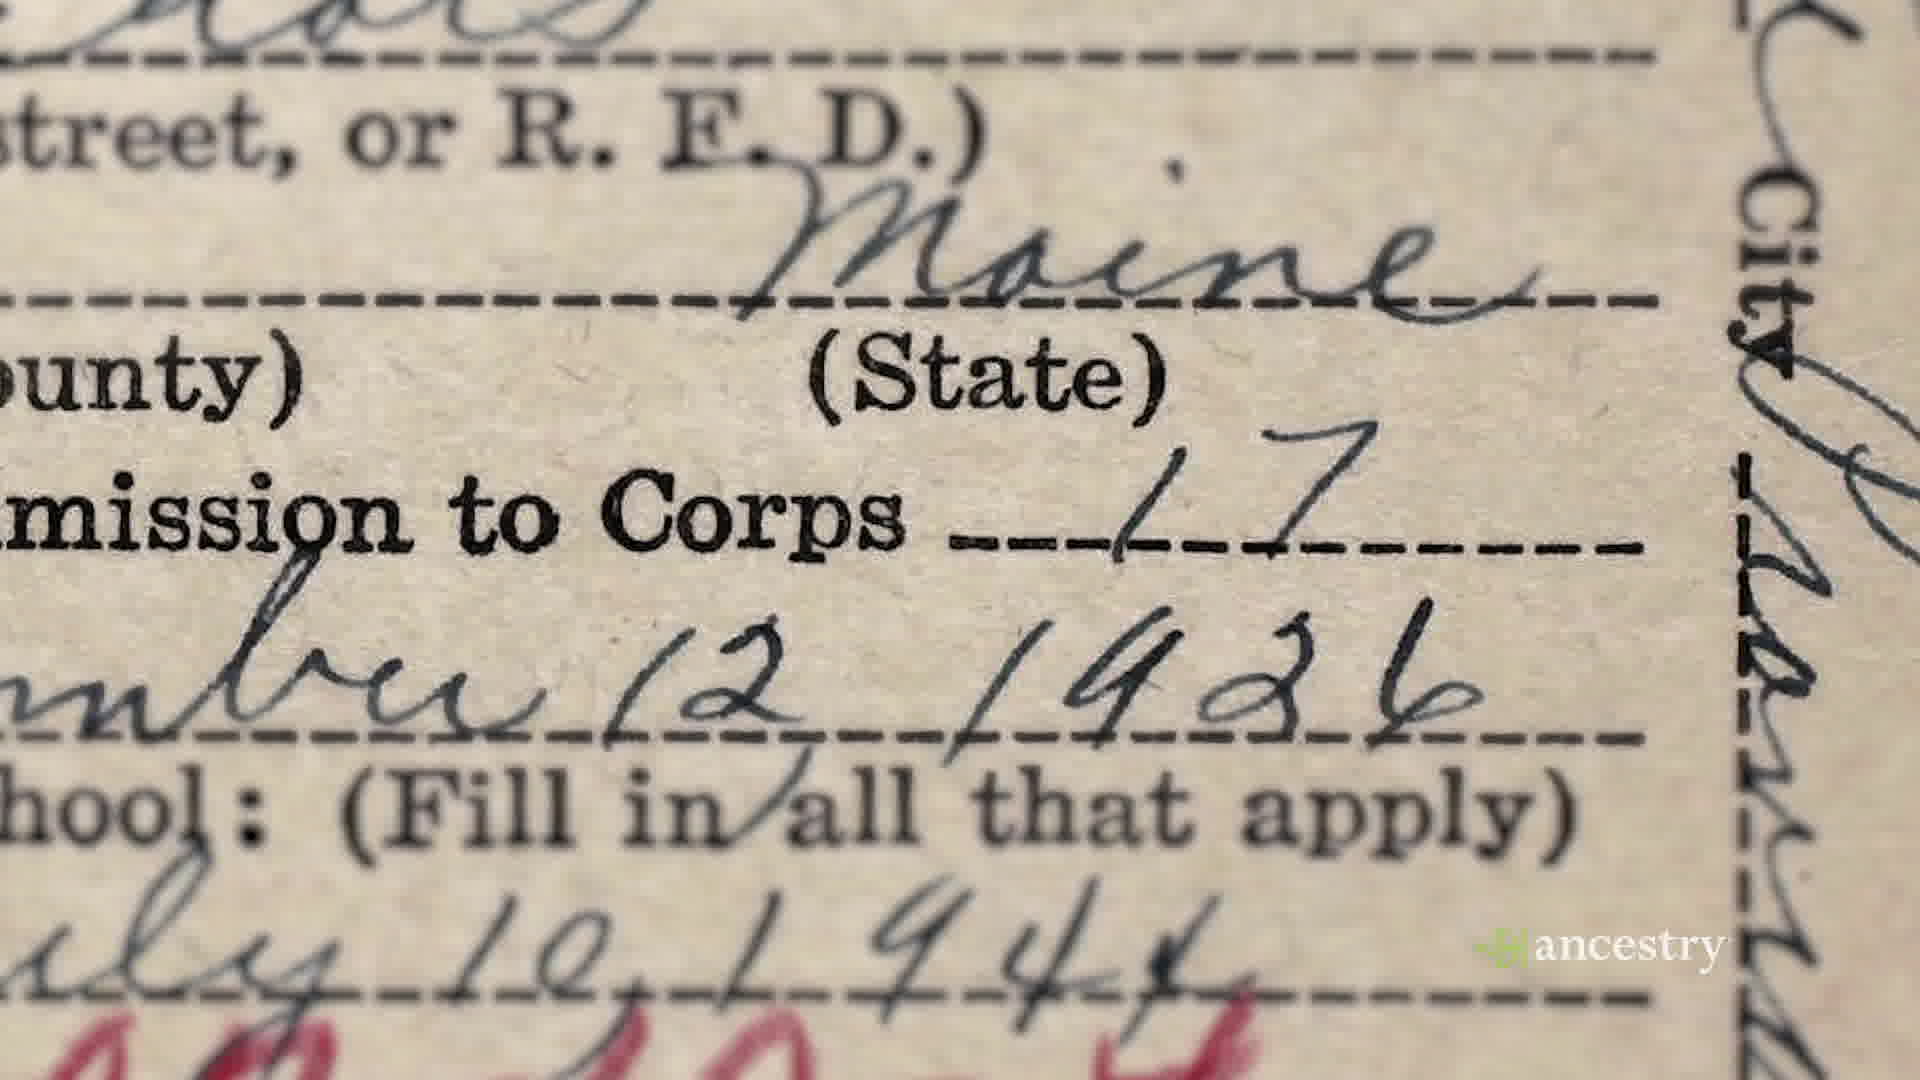 street, or R. F. D.)
Maine
ounty) (State)
mission to Corps 17
mber 12 1926
hool: (Fill in all that apply)
uly 10, 1944
City
ancestry